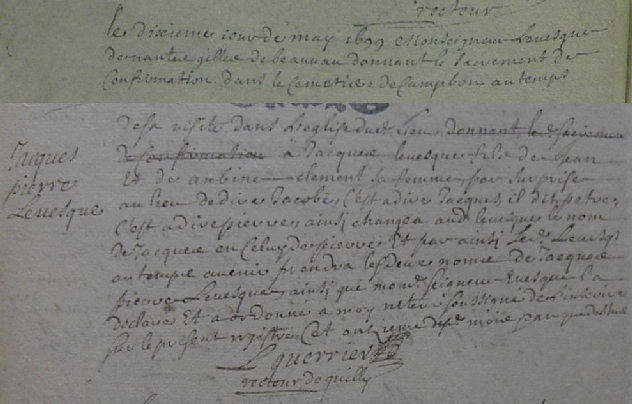 recteur
le dixieme jour de may 1699 Monseigneur Levesque
de nantes gilles de beauvau donnant le sacrement de
Confirmation dans le Cemetiere de Campbon au temps
de sa visite dans L'eglise dud. Lieu donnant le sacrement
de Confirmation a Jacques levesque fils de Jean
Et de aubine clement sa femme, par surprise
au lieu de dire Jacobe, C'est a dire Jacques, il dit petre,
C'est a dire pierre, ainsi changea aud levesque le nom
de Jacques en Celuy de pierre Et par ainsi Led. Levesq
au temps avenir prendra les deux noms de Jacques
pierre Levesque ainsi que mond. seigneur Evesque l'a
declare Et a ordonné a moy recteur soussigné de l'inscrire
sur le present registre, Cet onzieme de may par que dessus
Jaques
pierre
Levesque
L guerrier
recteur de quilly